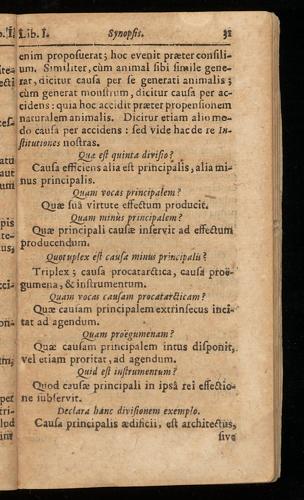 Lib. I. Synopsis. 31
enim proposuerat; hoc evenit præter consili-
um. Similiter, cùm animal sibi simile gene-
rat, dicitur causa per se generati animalis;
cùm generat monstrum, dicitur causa per ac-
cidens: quia hoc accidit præter propensionem
naturalem animalis. Dicitur etiam alio mo-
do causa per accidens: sed vide hac de re In-
stitutiones nostras.
Quæ est quinta divisio?
Causa efficiens alia est principalis, alia mi-
nus principalis.
Quam vocas principalem?
Quæ suâ virtute effectum producit.
Quam minùs principalem?
Quæ principali causæ inservit ad effectum
producendum.
Quotuplex est causa minus principalis?
Triplex; causa procatarctica, causa proë-
gumena, & instrumentum.
Quam vocas causam procatarcticam?
Quæ causam principalem extrinsecus inci-
tat ad agendum.
Quam proëgumenam?
Quæ causam principalem intus disponit,
vel etiam proritat, ad agendum.
Quid est instrumentum?
Quod causæ principali in ipsâ rei effectio-
ne subservit.
Declara hanc divisionem exemplo.
Causa principalis ædificii, est architectus,
sive